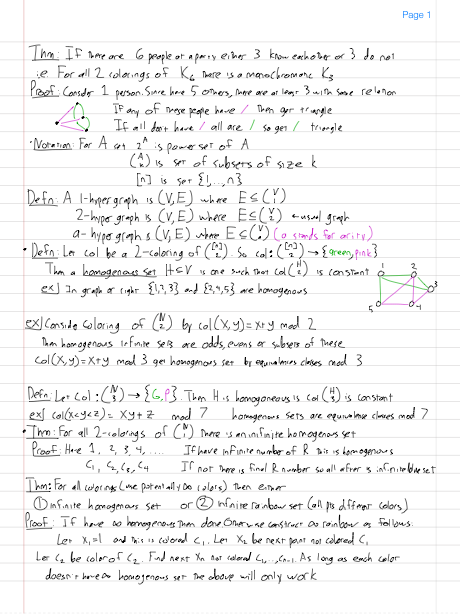 Page 1
Thm: If there are 6 people at a party either 3 know each other or 3 do not
i.e. For all 2 colorings of K₆ there is a monochromatic K₃
Proof: Consider 1 person. Since have 5 others, there are at least 3 with same relation
If any of these people have / then get triangle
If all don't have / all are / so get / triangle
• Notation: For A set 2^A is power set of A
(A k) is set of subsets of size k
[n] is set {1,...,n}
Defn: A 1-hypergraph is (V,E) where E ⊆ (V 1)
2-hypergraph is (V,E) where E ⊆ (V 2) ← usual graph
a-hypergraph is (V,E) where E ⊆ (V a) (a stands for arity)
• Defn: Let col be a 2-coloring of ([n] 2). So col: ([n] 2) → {green, pink}
Then a homogenous set H ⊆ V is one such that col (H 2) is constant
ex] In graph on right {1,2,3} and {2,4,5} are homogenous
1 2 3 4 5
ex] Consider Coloring of (N 2) by col(x,y) = x+y mod 2
Then homogenous infinite sets are odds, evens or subsets of these
Col(x,y) = x+y mod 3 get homogenous set by equivalence classes mod 3
Defn: Let Col: (N 3) → {G,P}. Then H is homogeneous is Col (H 3) is constant
ex] col(x<y<z) = xy+z mod 7 homogenous sets are equivalence classes mod 7
• Thm: For all 2-colorings of (N 1) there is an infinite homogenous set
Proof: Have 1, 2, 3, 4, .... If have infinite number of R this is homogenous
C₁, C₂, C₃, C₄ If not there is final R number so all after is infinite blue set
Thm: For all colorings (use potentially ∞ colors) then either
① infinite homogenous set or ② infinite rainbow set (all pts different colors)
Proof: If have ∞ homogenous then done. Otherwise construct ∞ rainbow as follows:
Let x₁=1 and this is colored C₁. Let x₂ be next point not colored C₁
Let C₂ be color of C₂. Find next xₙ not colored C₁,...,Cₙ₋₁. As long as each color
doesn't have ∞ homogenous set the above will only work